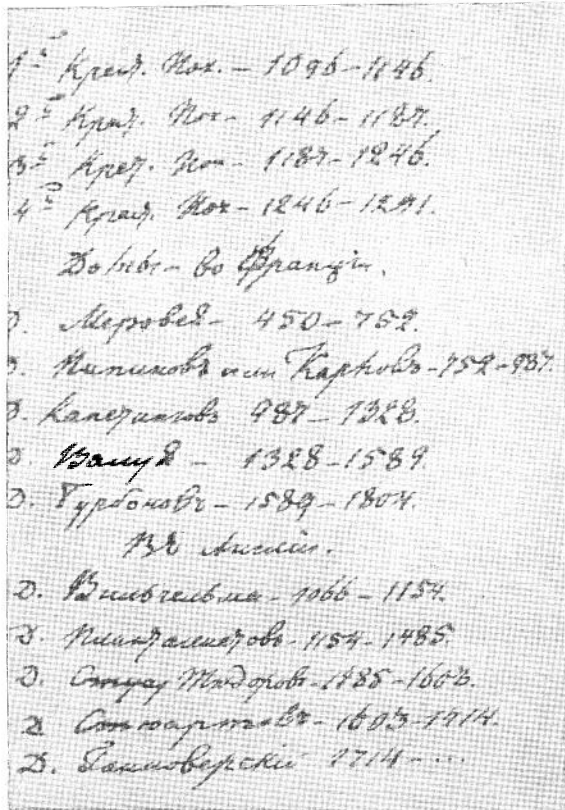 1й Крест. Пох. – 1096–1146.
2й Крест. Пох – 1146–1187.
3й Крест. Пох – 1187–1246.
4й Крест. Пох – 1246–1291.
во Франціи.
Д. Меровея – 450–752.
Д. Пипиновъ или Карловъ – 752–987.
Д. Капетинговъ 987–1328.
Д. Валуа – 1328–1589.
Д. Бурбоновъ – 1589–1804.
Въ Англіи.
Д. Вильгельма – 1066–1154.
Д. Плантагенетовъ – 1154–1485.
Д. Тюдоровъ – 1485–1603.
Д. Стюартовъ – 1603–1714.
Д. Ганноверскій 1714 – ...